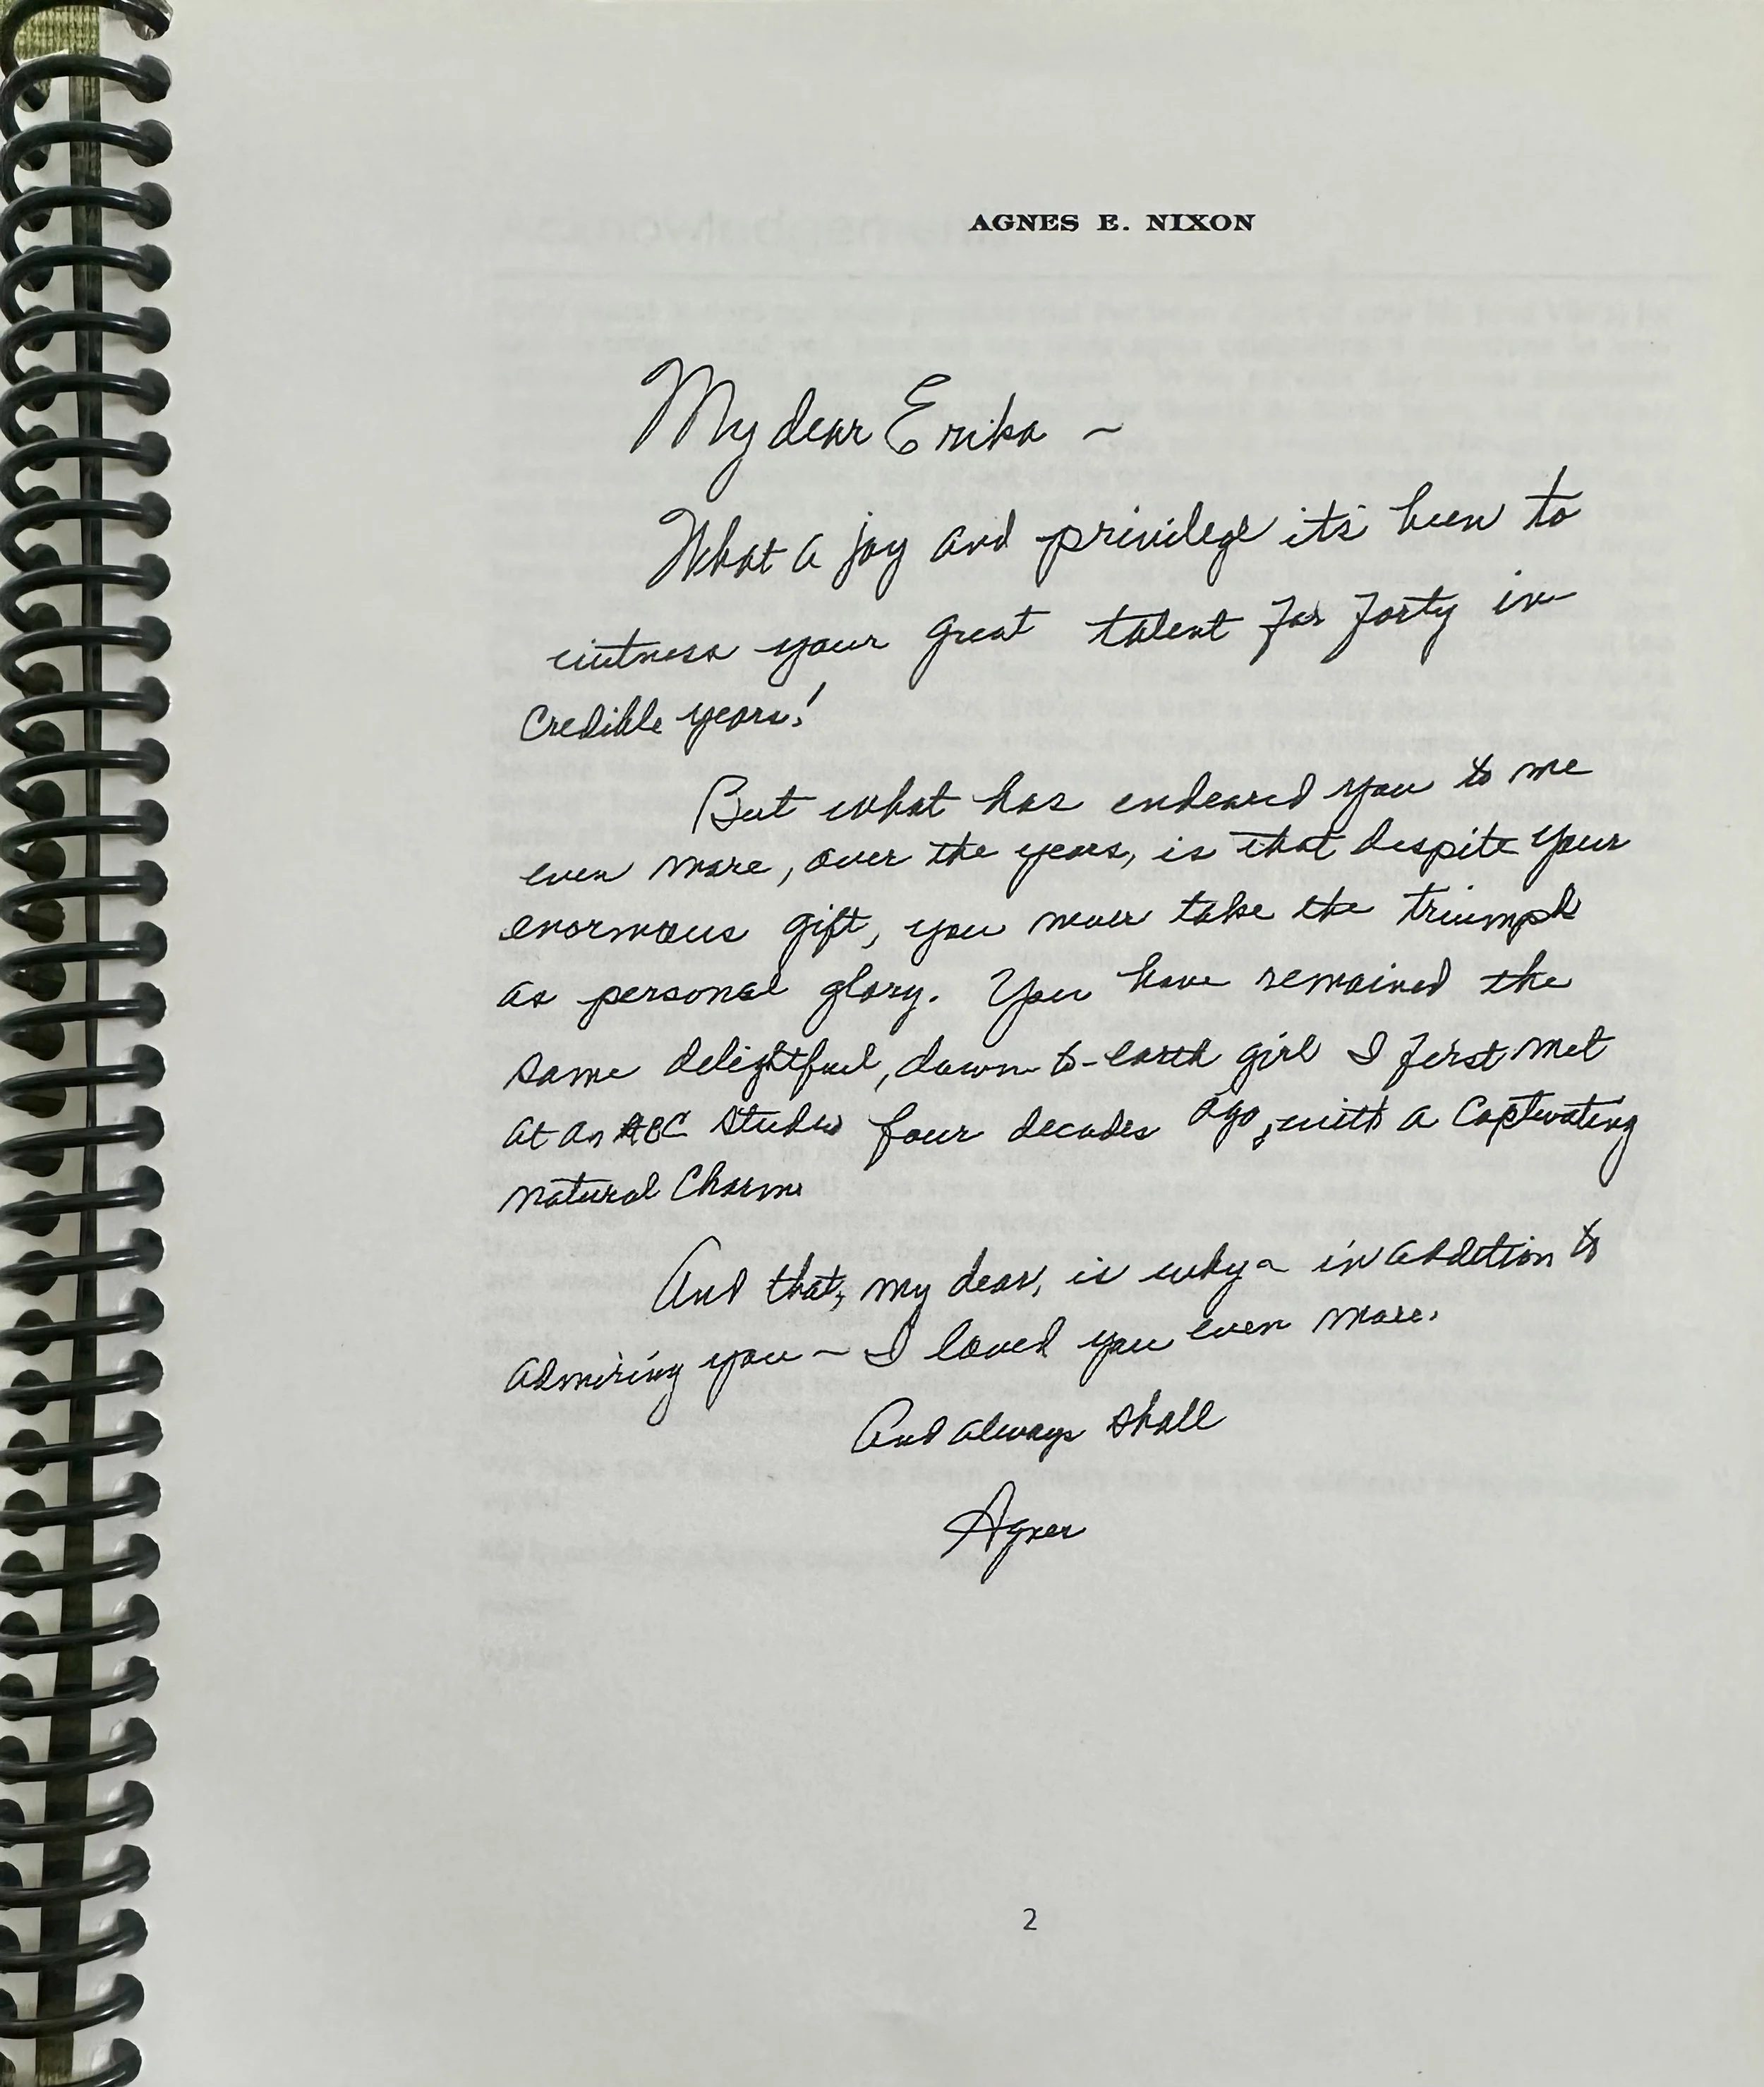 AGNES E. NIXON
My dear Erika ~
What a joy and privilege it's been to
witness your great talent for forty in-
credible years!
But what has endeared you to me
even more, over the years, is that despite your
enormous gift, you never take the triumph
as personal glory. You have remained the
same delightful, down-to-earth girl I first met
at an ABC studio four decades ago, with a captivating
natural charm
And that, my dear, is why ~ in addition to
admiring you ~ I loved you even more.
And always shall
Agnes
2